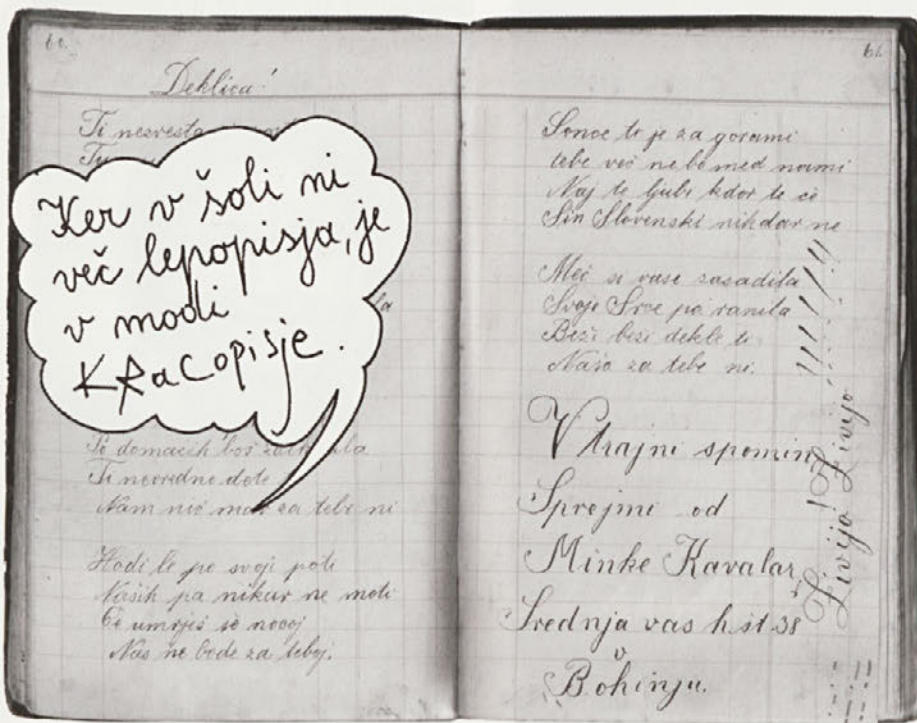 60.
Deklica!
Ti nezvesta
Ker v šoli ni
več lepopisja, je
v modi
KRacopisje.
Po domačih boš
Ti nevredno dete
Nam nič mar za tebe ni
Hodi le po svoji poti
Nasih pa nikar ne moti
Če umrješ še nocoj
Nas ne bode za teboj.
61.
Sonce ti je za gorami
tebe več ne bo med nami
Naj te ljubi kdor te če
Sin Slovenski nikdar ne
Meč si vase zasadila
Svoje Srce pa ranila
Beži beži dekle ti
Naša za tebe ni.
V trajni spomin
Sprejmi od
Minke Kavalar,
Srednja vas h. št 38
v
Bohinju.
Živijo! Živijo